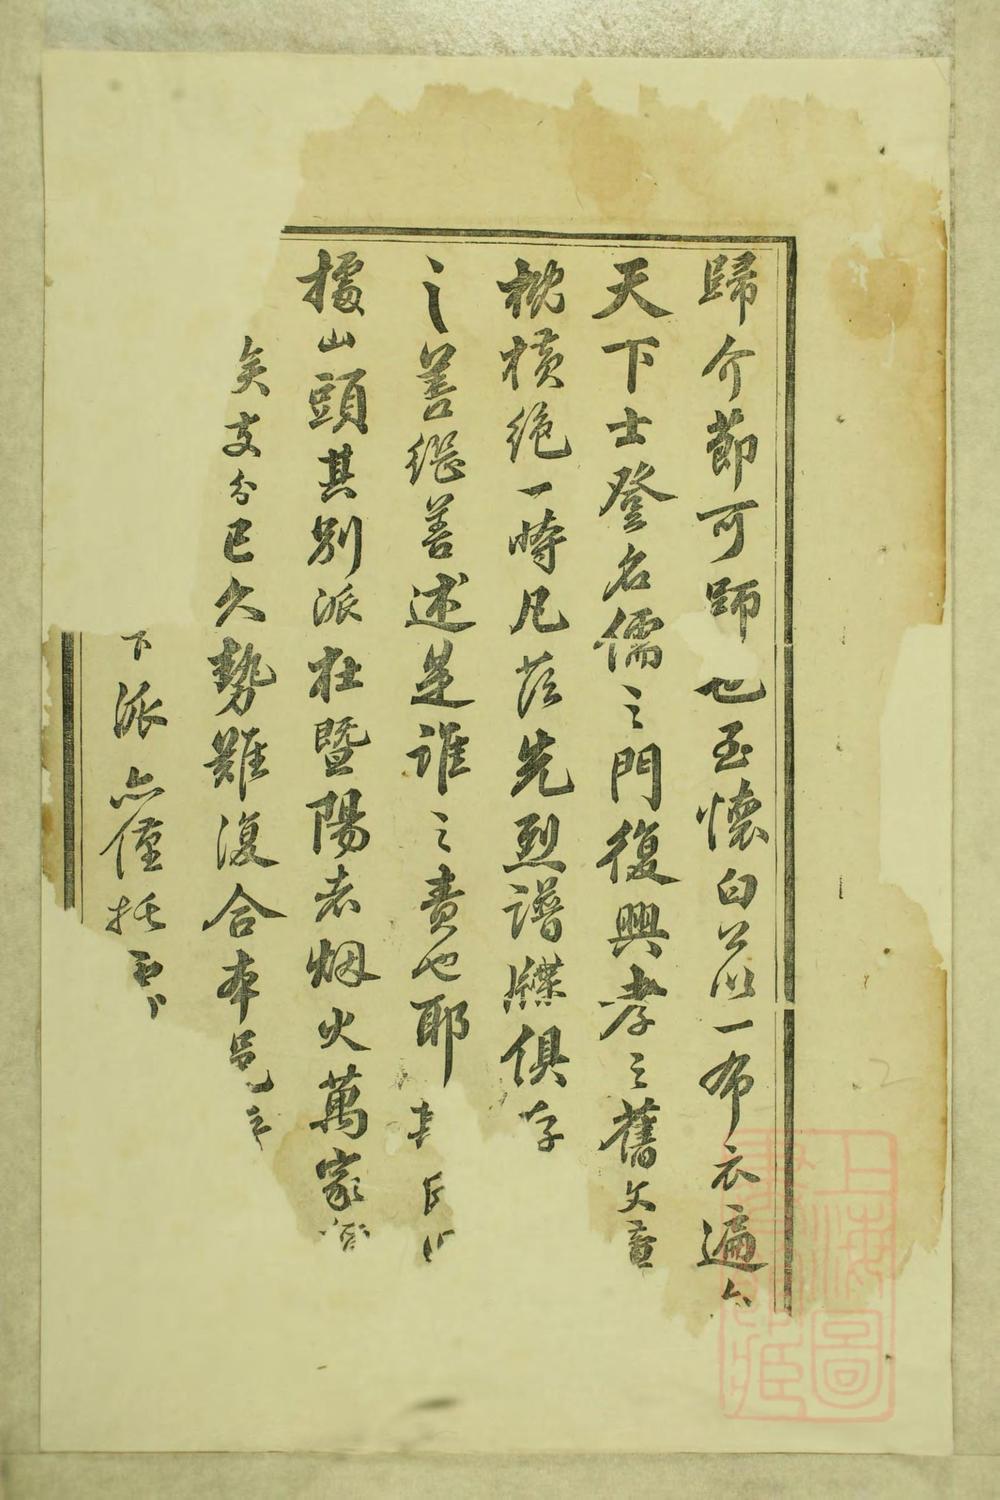 歸介節可師也至懷白公以一布衣遍
天下士登名儒之門復興孝之舊文章
橫絶一時凡茲先烈譜牒俱存
之善継善述是誰之責也耶
據山頭其別派在暨陽者烟火萬家
矣支分已久勢難復合本邑
下派亦僅托
上海圖書館藏